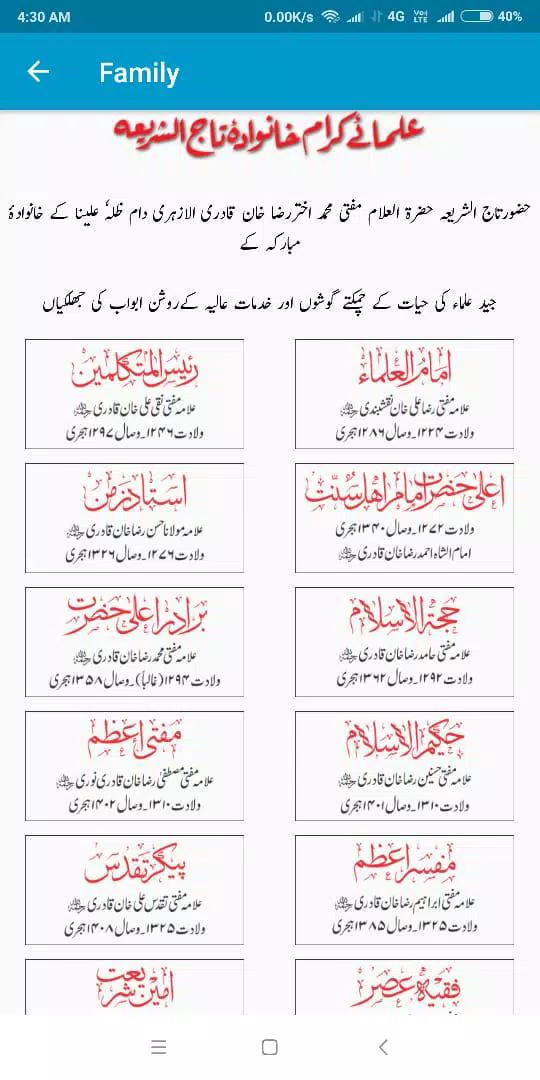 4:30 AM 0.00K/s 4G VoLTE 40%
Family
علمائے کرام خانوادۂ تاج الشریعہ
حضور تاج الشریعہ حضرۃ العلام مفتی محمد اختر رضا خان قادری الازہری دام ظلہٗ علینا کے خانوادۂ
مبارکہ کے
جید علماء کی حیات کے چمکتے گوشوں اور خدمات عالیہ کے روشن ابواب کی جھلکیاں
امام العلماء
علامہ مفتی رضا علی خان نقشبندی
ولادت ۱۲۲۴۔وصال ۱۲۸۶ ہجری
رئیس المتکلمین
علامہ مفتی نقی علی خان قادری
ولادت ۱۲۴۶۔وصال ۱۲۹۷ ہجری
اعلیٰ حضرت امام اہل سنت
ولادت ۱۲۷۲۔وصال ۱۳۴۰ ہجری
امام الشاہ احمد رضا خان قادری
استاد زمن
علامہ مولانا حسن رضا خان قادری
ولادت ۱۲۷۶۔وصال ۱۳۲۶ ہجری
حجۃ الاسلام
علامہ مفتی حامد رضا خان قادری
ولادت ۱۲۹۲۔وصال ۱۳۶۲ ہجری
برادر اعلیٰ حضرت
علامہ مفتی محمد رضا خان قادری
ولادت ۱۲۹۴(غالباً)۔وصال ۱۳۵۸ ہجری
حکیم الاسلام
علامہ مفتی حسنین رضا خان قادری
ولادت ۱۳۱۰۔وصال ۱۴۰۱ ہجری
مفتی اعظم
علامہ مفتی مصطفیٰ رضا خان قادری نوری
ولادت ۱۳۱۰۔وصال ۱۴۰۲ ہجری
مفسر اعظم
علامہ مفتی ابراہیم رضا خان قادری
ولادت ۱۳۲۵۔وصال ۱۳۸۵ ہجری
پیکر تقدس
علامہ مفتی تقدس علی خان قادری
ولادت ۱۳۲۵۔وصال ۱۴۰۸ ہجری
فقیہ عصر
امین شریعت